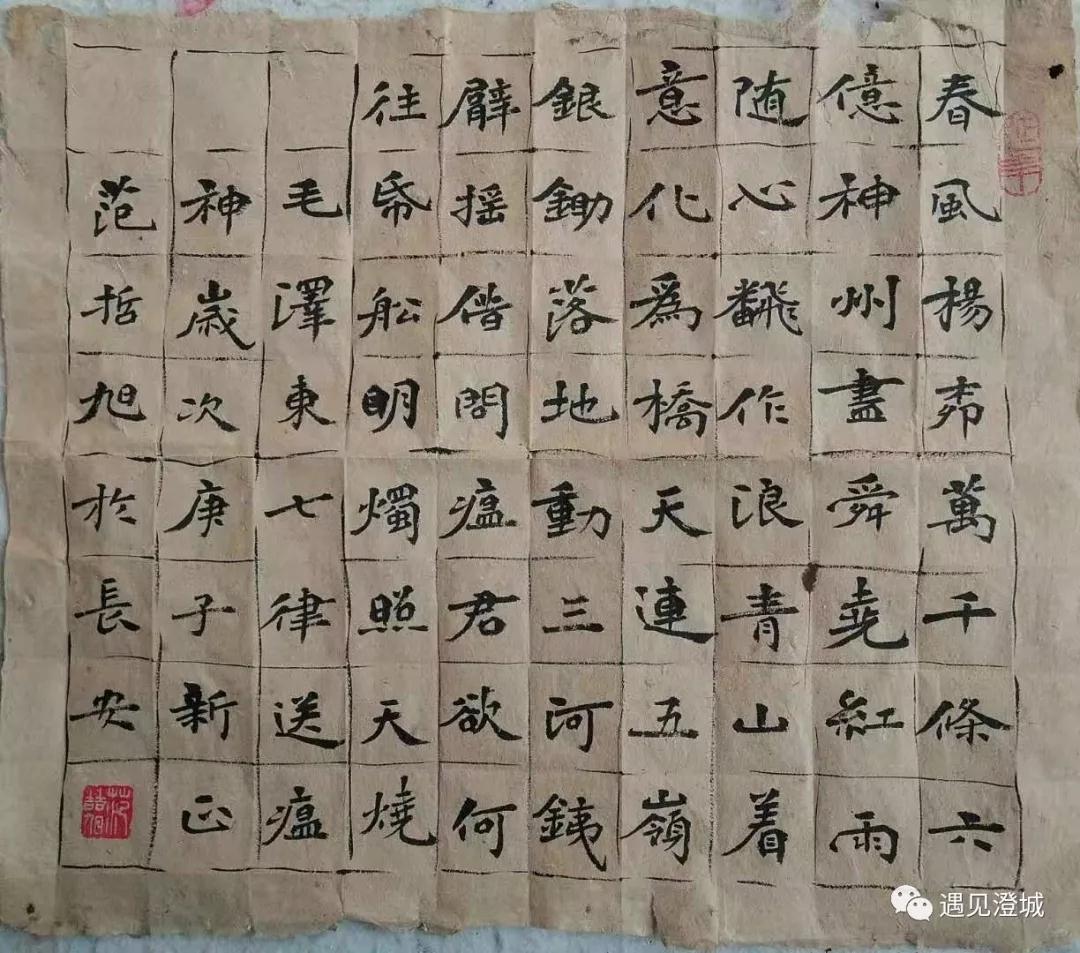 春風楊柳萬千條六
億神州盡舜堯紅雨
随心飜作浪青山着
意化爲橋天連五嶺
銀鋤落地動三河銕
臂摇借問瘟君欲何
往帋船明燭照天燒
毛澤東七律送瘟
神歲次庚子新正
范哲旭於長安
遇见澄城